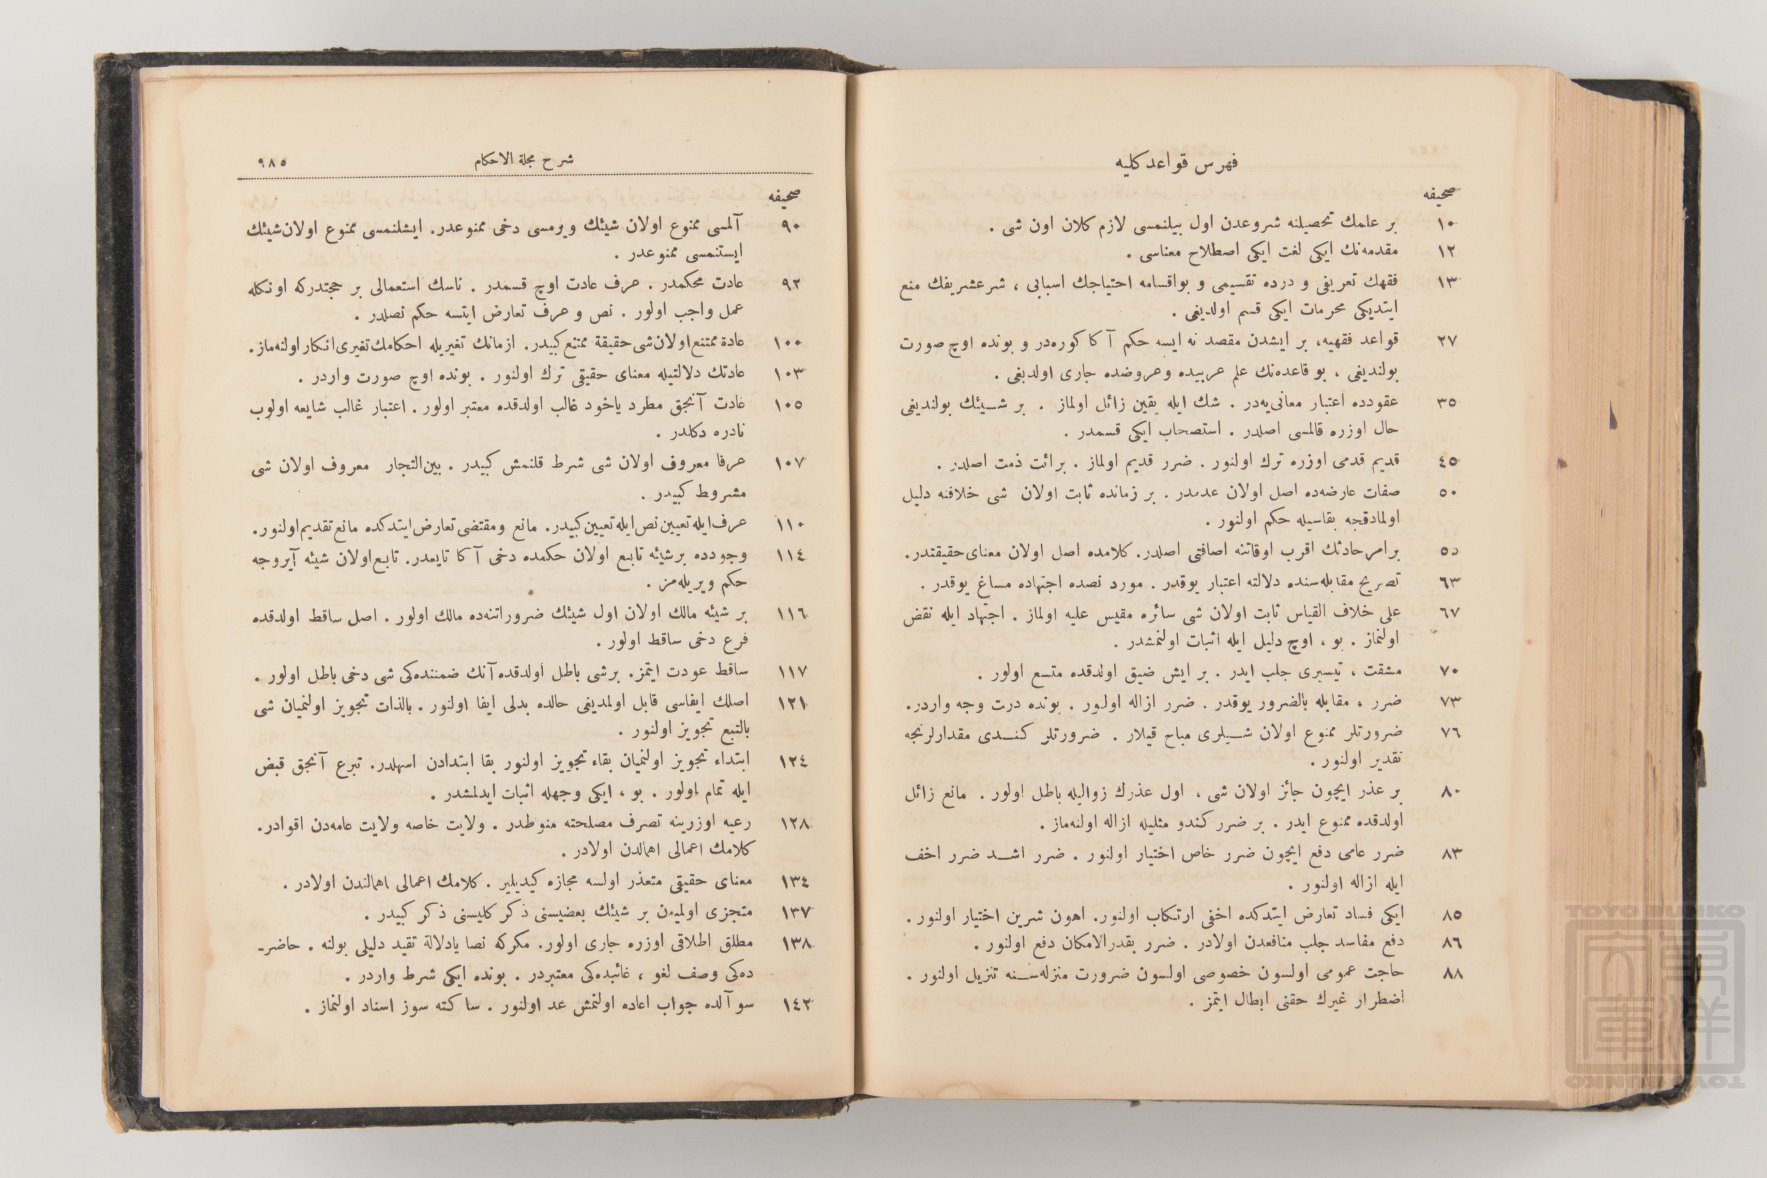 فهرس قواعد كليه
صحيفه
١٠ بر علمك تحصيلنه شروعدن اول بيلنمسى لازم كلان اون شى .
١٢ مقدمه‌نك ايكى لغت ايكى اصطلاح معناسى .
١٣ فقهك تعريفى و درده تقسيمى و بواقسامه احتياجك اسبابى ، شرعشريفك منع
ايتديكى محرمات ايكى قسم اولديغى .
٢٧ قواعد فقهيه، بر ايشدن مقصد نه ايسه حكم آكا كوره‌در و بونده اوچ صورت
بولنديغى ، بو قاعده‌نك علم عربيده وعروضده جارى اولديغى .
٣٥ عقودده اعتبار معانى‌يه‌در . شك ايله يقين زائل اولماز . بر شيئك بولنديغى
حال اوزره قالمسى اصلدر . استصحاب ايكى قسمدر .
٤٥ قديم قدمى اوزره ترك اولنور . ضرر قديم اولماز . برائت ذمت اصلدر .
٥٠ صفات عارضه‌ده اصل اولان عدمدر . بر زمانده ثابت اولان شى خلافنه دليل
اولمادقجه بقاسيله حكم اولنور .
٥٥ برامرحادثك اقرب اوقاتنه اضافتى اصلدر. كلامده اصل اولان معناى‌حقيقتدر.
٦٣ تصريح مقابله‌سنده دلالته اعتبار يوقدر . مورد نصده اجتهاده مساغ يوقدر .
٦٧ على خلاف القياس ثابت اولان شى سائره مقيس عليه اولماز . اجتهاد ايله نقض
اولنماز . بو ، اوچ دليل ايله اثبات اولنمشدر .
٧٠ مشقت ، تيسيرى جلب ايدر . بر ايش ضيق اولدقده متسع اولور .
٧٣ ضرر ، مقابله بالضرور يوقدر . ضرر ازاله اولور . بونده درت وجه واردر.
٧٦ ضرورتلر ممنوع اولان شيلرى مباح قيلار . ضرورتلر كندى مقدارلرنجه
تقدير اولنور .
٨٠ بر عذر ايچون جائز اولان شى ، اول عذرك زواليله باطل اولور . مانع زائل
اولدقده ممنوع ايدر . بر ضرر كندو مثليله ازاله اولنه‌ماز .
٨٣ ضرر عامى دفع ايچون ضرر خاص اختيار اولنور . ضرر اشد ضرر اخف
ايله ازاله اولنور .
٨٥ ايكى فساد تعارض ايتدكده اخفى ارتكاب اولنور. اهون شرين اختيار اولنور .
٨٦ دفع مفاسد جلب منافعدن اولادر . ضرر بقدرالامكان دفع اولنور .
٨٨ حاجت عمومى اولسون خصوصى اولسون ضرورت منزله‌سنه تنزيل اولنور .
اضطرار غيرك حقنى ابطال ايتمز .
شرح مجلة الاحكام ٩٨٥
صحيفه
٩٠ آلمسى ممنوع اولان شيئك ويرمسى دخى ممنوعدر. ايشلنمسى ممنوع اولان‌شيئك
ايستنمسى ممنوعدر .
٩٢ عادت محكمدر . عرف عادت اوچ قسمدر . ناسك استعمالى بر حجتدركه اونكله
عمل واجب اولور . نص و عرف تعارض ايتسه حكم نصلدر .
١٠٠ عادة ممتنع‌اولان‌شى‌حقيقة ممتنع‌كبيدر. ازمانك تغيريله احكامك‌تغيرى‌انكاراولنه‌ماز.
١٠٣ عادتك دلالتيله معناى حقيقى ترك اولنور . بونده اوچ صورت واردر .
١٠٥ عادت آنجق مطرد ياخود غالب اولدقده معتبر اولور . اعتبار غالب شايعه اولوب
نادره دكلدر .
١٠٧ عرفا معروف اولان شى شرط قلنمش كبيدر . بين‌التجار معروف اولان شى
مشروط كبيدر .
١١٠ عرف‌ايله‌تعيين‌نص‌ايله‌تعيين‌كبيدر. مانع ومقتضى‌تعارض‌ايتدكده مانع‌تقديم‌اولنور.
١١٤ وجودده برشيئه تابع اولان حكمده دخى آكا تابعدر. تابع‌اولان شيئه آيروجه
حكم ويريله‌مز .
١١٦ بر شيئه مالك اولان اول شيئك ضروراتنه‌ده مالك اولور . اصل ساقط اولدقده
فرع دخى ساقط اولور .
١١٧ ساقط عودت ايتمز. برشى باطل اولدقده آنك ضمننده‌كى شى دخى باطل اولور .
١٢١ اصلك ايفاسى قابل اولمديغى حالده بدلى ايفا اولنور . بالذات تجويز اولنميان شى
بالتبع تجويز اولنور .
١٢٤ ابتداء تجويز اولنميان بقاء تجويز اولنور بقا ابتدادن اسهلدر. تبرع آنجق قبض
ايله تمام اولور . بو ، ايكى وجهله اثبات ايدلمشدر .
١٢٨ رعيه اوزرينه تصرف مصلحته منوطدر . ولايت خاصه ولايت عامه‌دن اقوادر.
كلامك اعمالى اهمالدن اولادر .
١٣٤ معناى حقيقى متعذر اولسه مجازه كيديلير . كلامك اعمالى اهمالندن اولادر .
١٣٧ متجزى اوليمن بر شيئك بعضيسنى ذكر كليسنى ذكر كبيدر .
١٣٨ مطلق اطلاقى اوزره جارى اولور. مكركه نصا يادلالة تقيد دليلى بولنه . حاضر-
ده‌كى وصف لغو ، غائبده‌كى معتبردر . بونده ايكى شرط واردر .
١٤٢ سوآلده جواب اعاده اولنمش عد اولنور . ساكته سوز اسناد اولنماز .
TOYO BUNKO